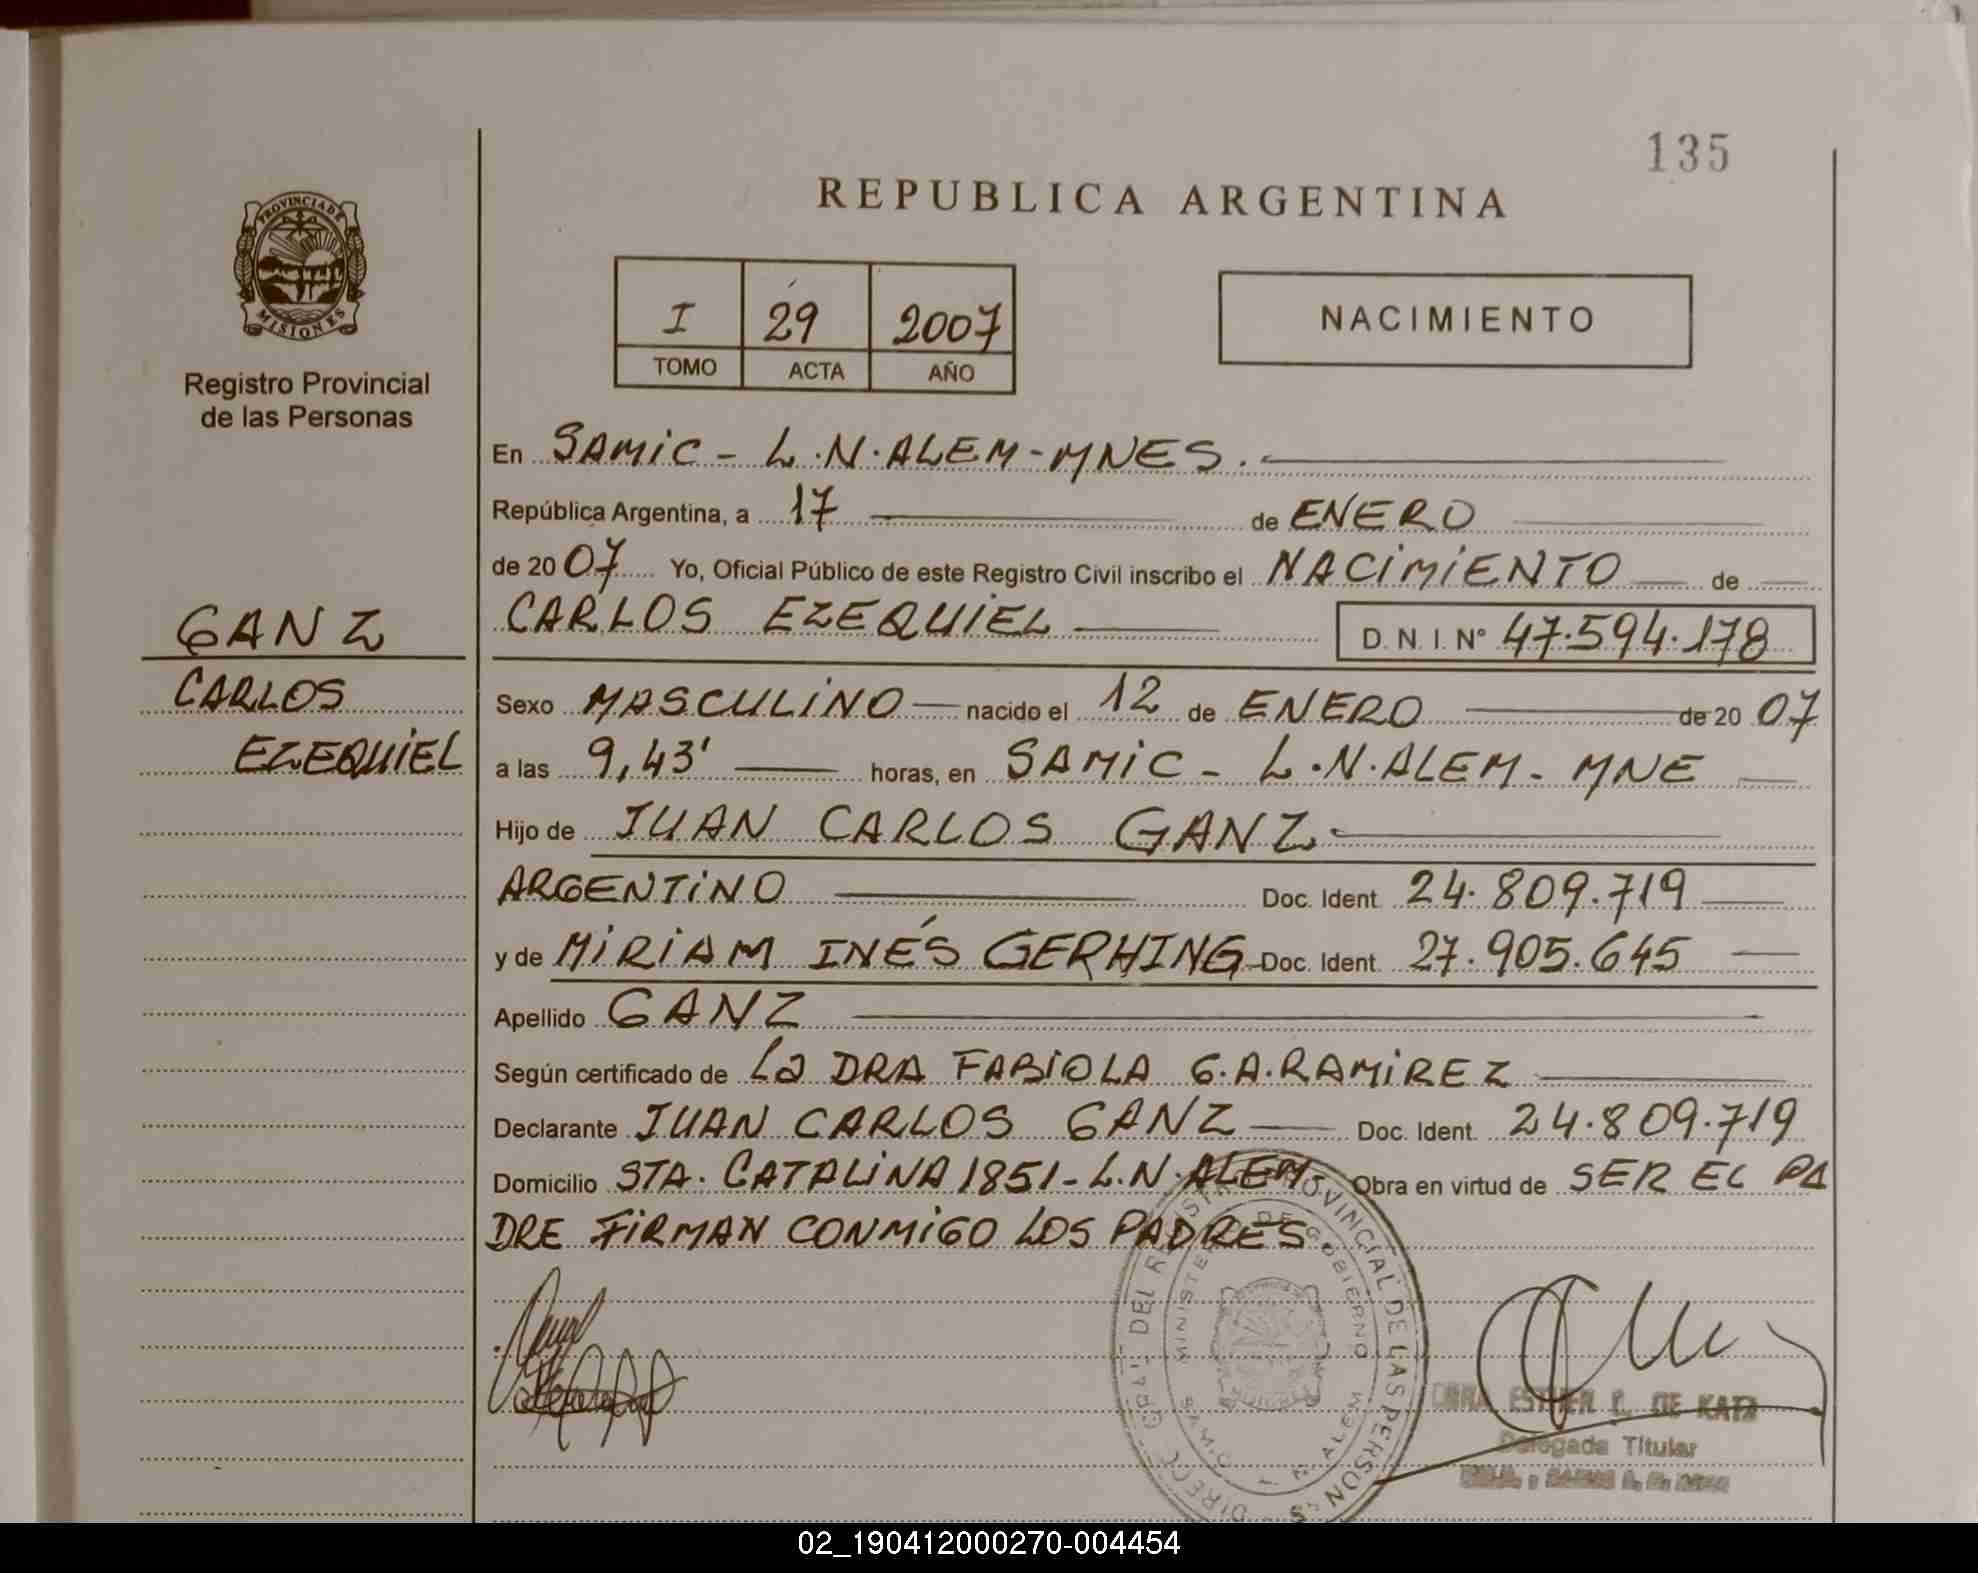 135
REPUBLICA ARGENTINA
PROVINCIA DE
MISIONES
Registro Provincial
de las Personas
I 29 2007
TOMO ACTA AÑO
NACIMIENTO
En SAMIC - L.N.ALEM-MNES.
República Argentina, a 17 de ENERO
de 2007 Yo, Oficial Público de este Registro Civil inscribo el NACIMIENTO de
CARLOS EZEQUIEL D.N.I. Nº 47.594.178
GANZ
CARLOS
EZEQUIEL
Sexo MASCULINO nacido el 12 de ENERO de 2007
a las 9,43' horas, en SAMIC - L.N.ALEM - MNE
Hijo de JUAN CARLOS GANZ
ARGENTINO Doc. Ident. 24.809.719
y de MIRIAM INÉS GERHING Doc. Ident. 27.905.645
Apellido GANZ
Según certificado de La DRA FABIOLA G.A.RAMIREZ
Declarante JUAN CARLOS GANZ Doc. Ident. 24.809.719
Domicilio STA. CATALINA 1851-L.N.ALEM. Obra en virtud de SER EL PA
DRE FIRMAN CONMIGO LOS PADRES.
DEL REGISTRO PROVINCIAL DE LAS PERSONAS
MINISTERIO DE GOBIERNO
ESTHER DE KATZ
Delegada Titular
02_190412000270-004454